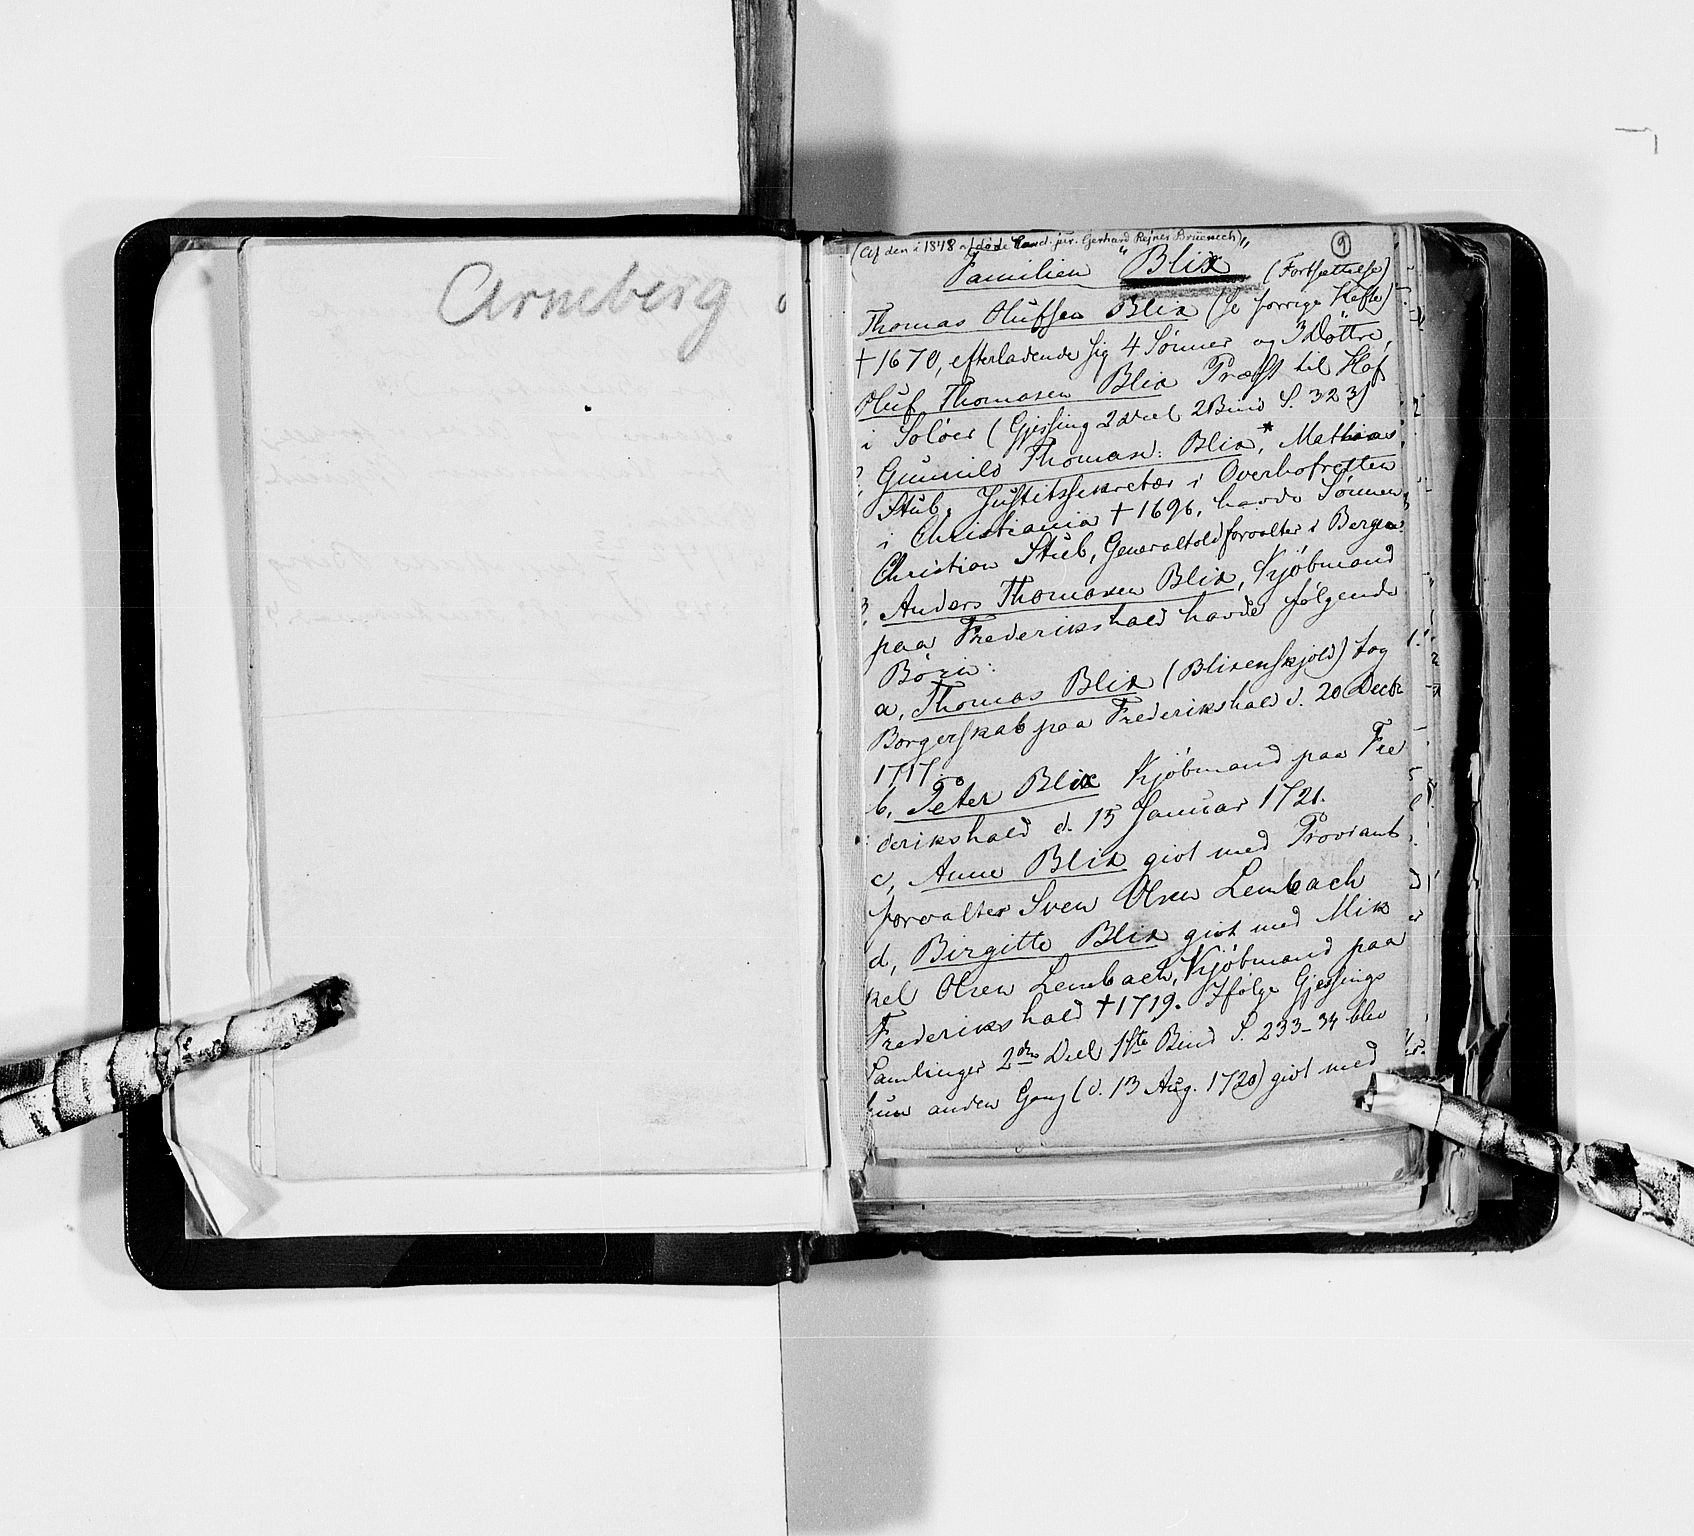 Arneberg
(Af den i 1848 afdøde Cand. jur. Gerhard Rejner Bruenech)
9
Familien "Blix" (Fortsættelse)
Thomas Olufsen Blix (se forrige Hefte)
† 1670, efterladende sig 4 Sønner og 3 Döttre,
Oluf Thomasen Blix Præst til Hof
i Soløer (Gjessing 2 Deel 2 Bind S. 323)
Gunnild Thomasn: Blix,* Mathias
Stub, Justitssekretær i Overhofretten
i Christiania † 1696, havde Sønnen
Christian Stub, Generaltoldforvalter i Bergen.
3, Anders Thomasen Blix, Kjøbmand
paa Frederikshald havde følgende
Børn:
a, Thomas Blix (Blixenskjold) tog
Borgerskab paa Frederikshald d. 20 Decbr
1717.
b, Peter Blix Kjøbmand paa Fre
derikshald d. 15 Januar 1721.
c, Anne Blix givt med Proviant
forvalter Sven Olsen Lembach
d, Birgitte Blix givt med Mik
kel Olsen Lembach, Kjøbmand paa
Frederikshald † 1719. Ifølge Gjessings
Samlinger 2den Deel 1ste Bind S. 233-34 blev
hun anden Gang (d. 13 Aug. 1720) givt med